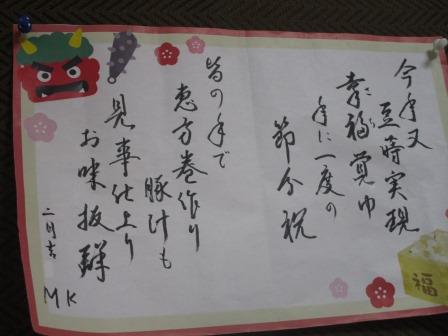 今年又
豆時実現
幸福覚ゆ
年に一度の
節分祝
皆の手で
恵方巻作り
豚汁も
見事仕上り
お味抜群
二月吉
MK
福